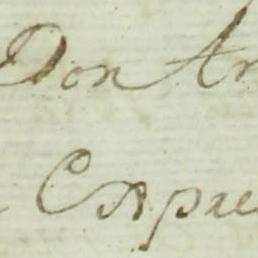 Don An
Expre